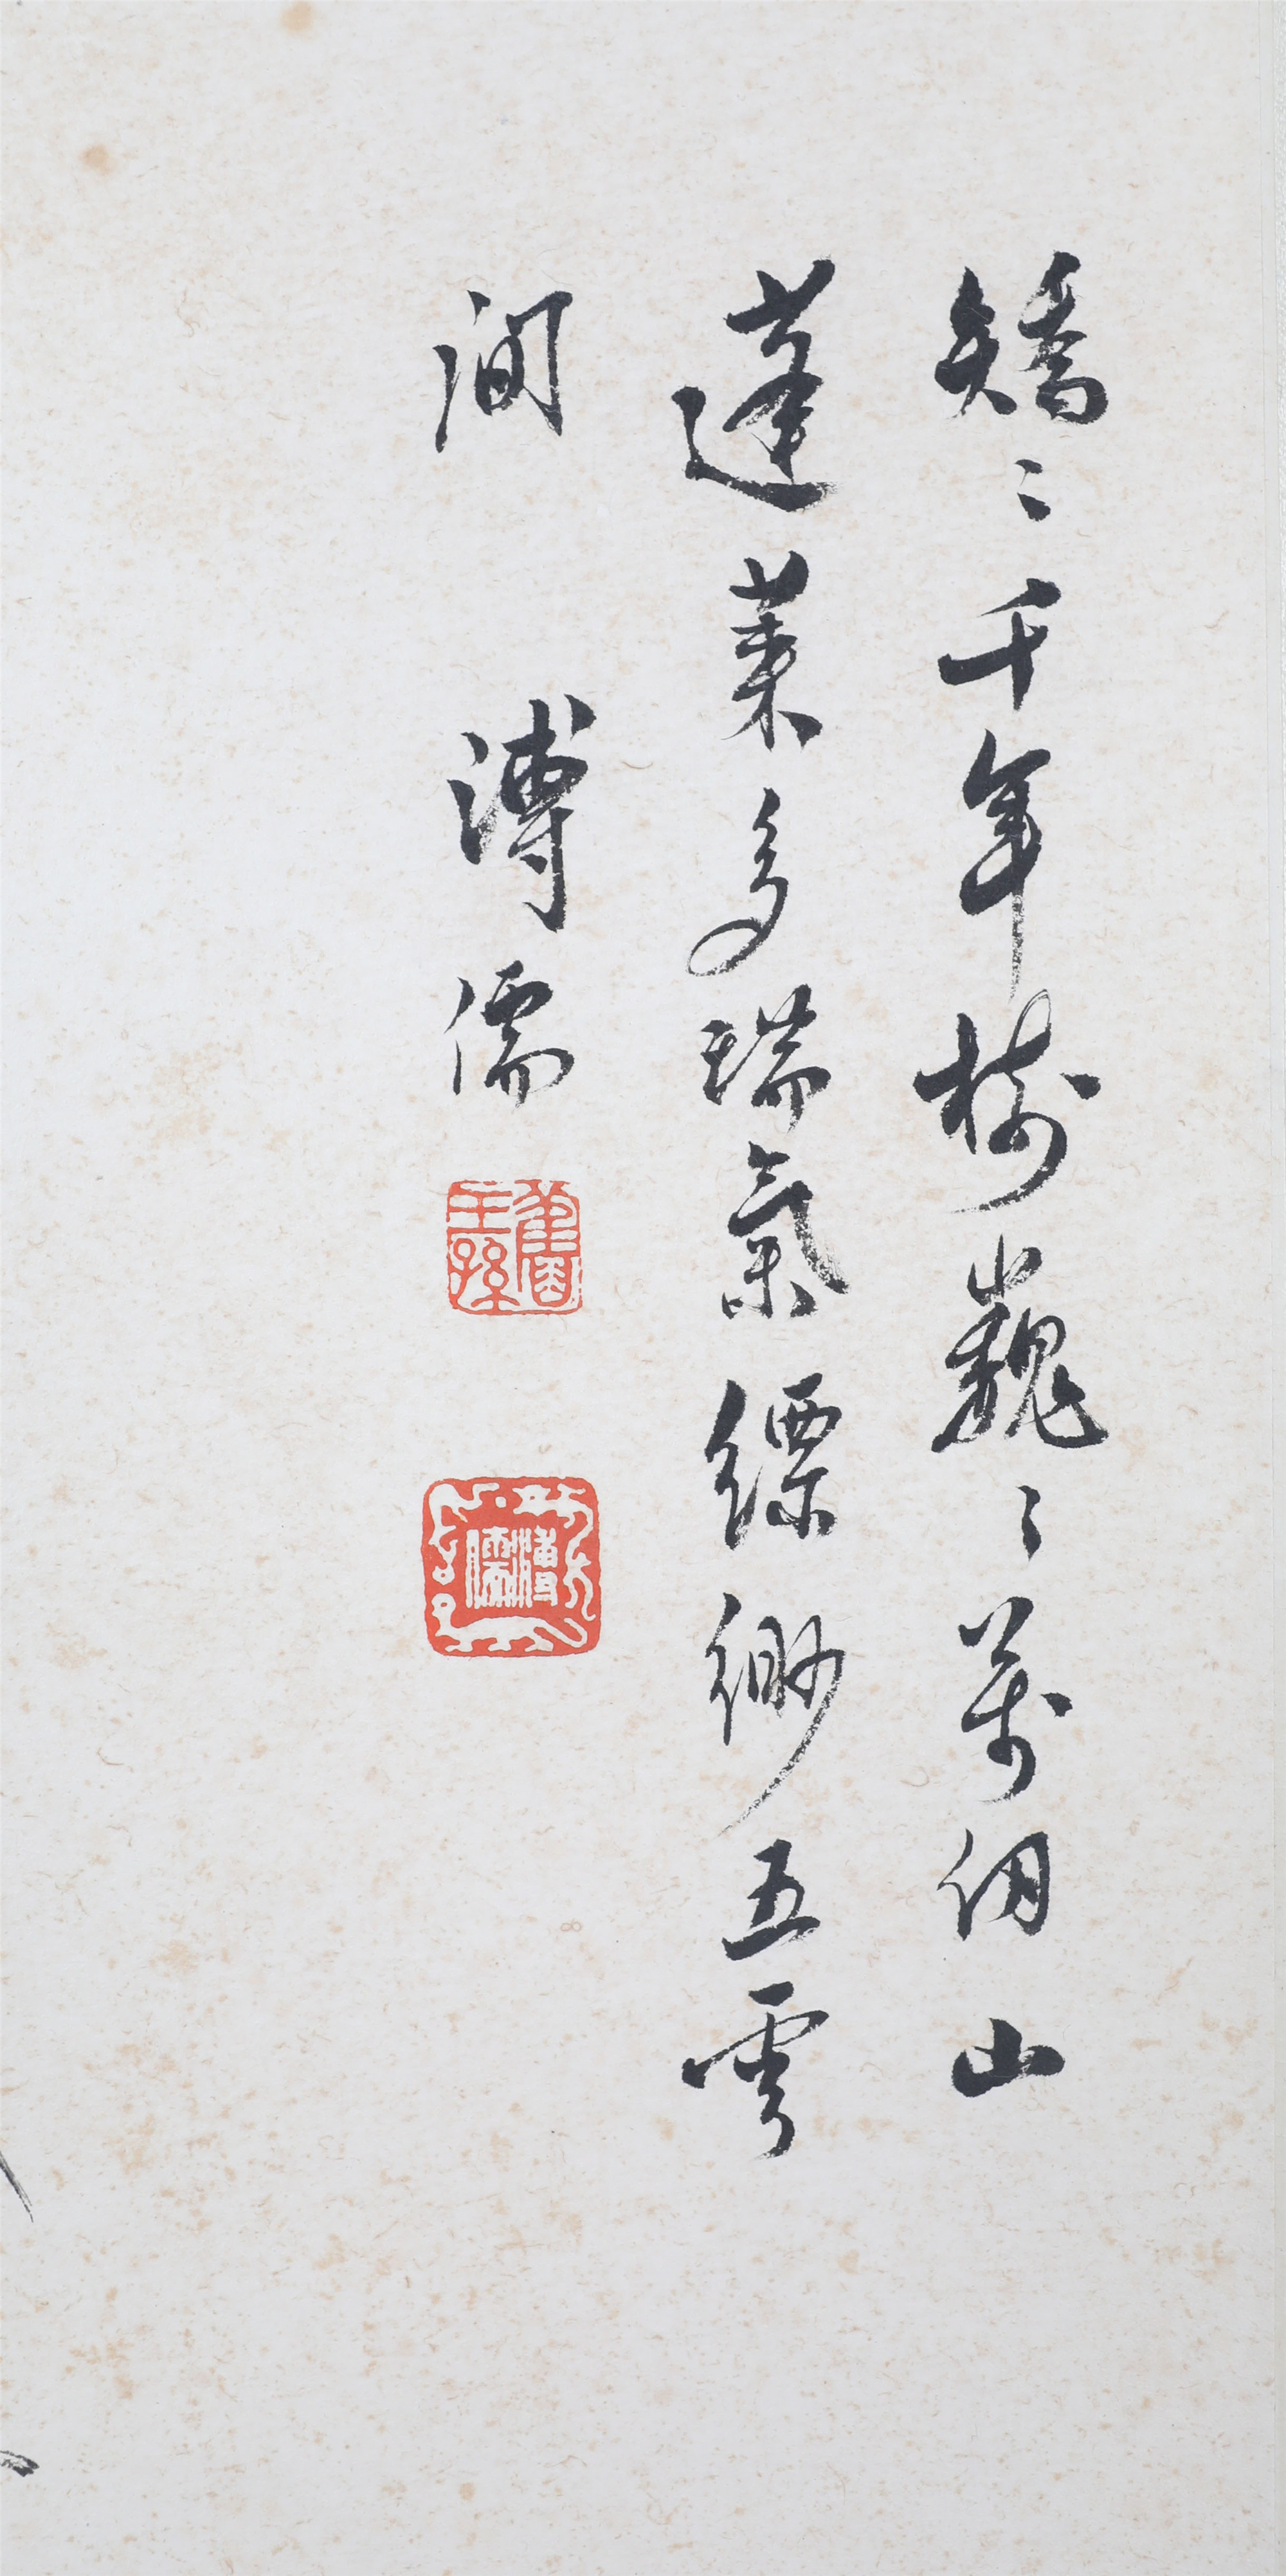 矯〻千年樹巍〻萬仞山
蓬莱多瑞氣縹緲五雲
間 溥儒
舊王孫
溥儒